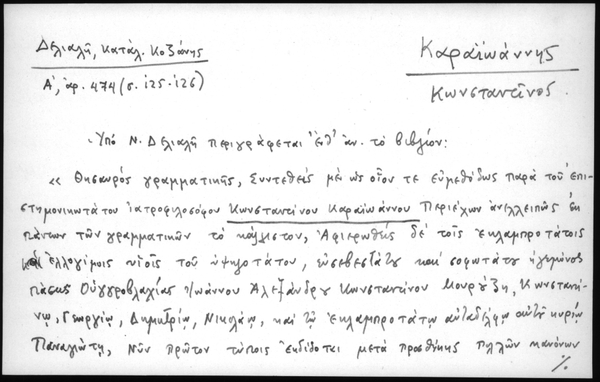 Δελιαλῆ, Κατάλ. Κοζάνης
Α΄, ἀρ. 474 (σ. 125-126)
Καραϊωάννης
Κωνσταντῖνος.
Ὑπὸ Ν. Δελιαλῆ περιγράφεται ἐνθ' ἀν. τὸ βιβλίον:
« Θησαυρὸς γραμματικῆς, Συντεθεὶς μὲ ὡς οἷον τε εὐμεθόδως παρὰ τοῦ ἐπι-
στημονικωτάτου ἰατροφιλοσόφου Κωνσταντίνου Καραϊωάννου Περιέχων ἀνελλειπῶς ἐκ
πάντων τῶν γραμματικῶν τὸ κάλλιστον, Ἀφιερωθεὶς δὲ τοῖς ἐκλαμπροτάτοις
καὶ ἐλλογίμοις υἱοῖς τοῦ ὑψηλοτάτου, εὐσεβεστάτου καὶ σοφωτάτου ἡγεμόνος
πάσης Οὑγγροβλαχίας Ἰωάννου Ἀλεξάνδρου Κωνσταντίνου Μουρούζη, Κωνσταντί-
νῳ, Γεωργίῳ, Δημητρίῳ, Νικολάῳ, καὶ τῷ ἐκλαμπροτάτῳ αὐταδέλφῳ αὐτῶν κυρίῳ
Παναγιώτῃ, Νῦν πρῶτον τύποις ἐκδίδοται μετὰ προσθήκης πολλῶν κανόνων
%